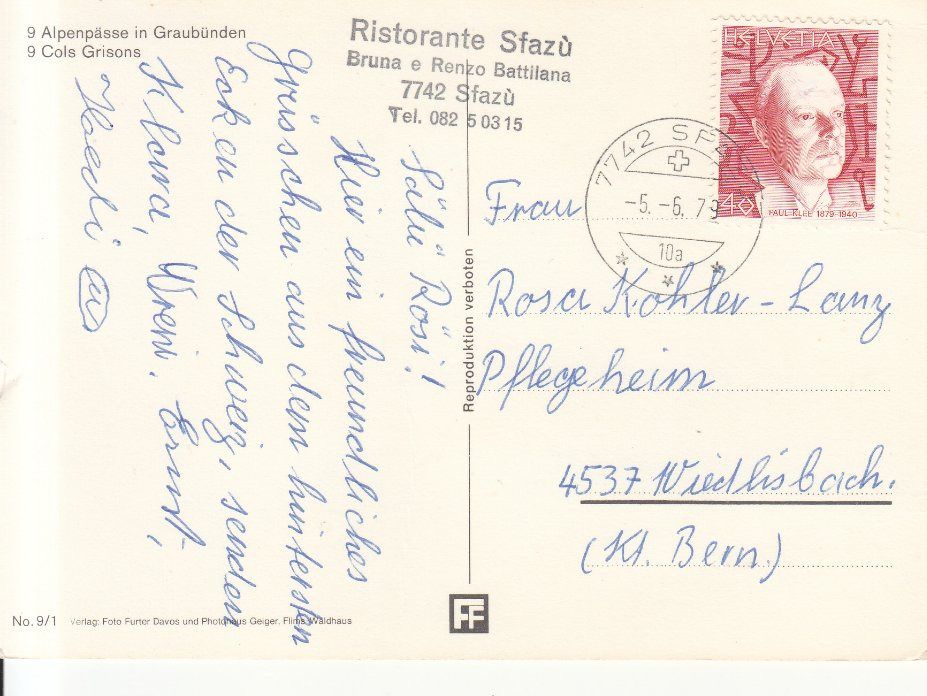 9 Alpenpässe in Graubünden
9 Cols Grisons
Ristorante Sfazù
Bruna e Renzo Battilana
7742 Sfazù
Tel. 082 5 03 15
HELVETIA
40
PAUL KLEE 1879-1940
7742 SFAZÙ
-5.-6.79
10a
Sälü Rösi!
Hier ein freundliches
Grüsschen aus dem hintersten
Ecken der Schweiz, senden
Klara, Vreni, Ernst,
Haedi
Frau
Rosa Kohler-Lanz
Pflegeheim
4537 Wiedlisbach.
(Kt. Bern.)
Reproduktion verboten
No. 9/1 Verlag: Foto Furter Davos und Photohaus Geiger, Flims Waldhaus
FF